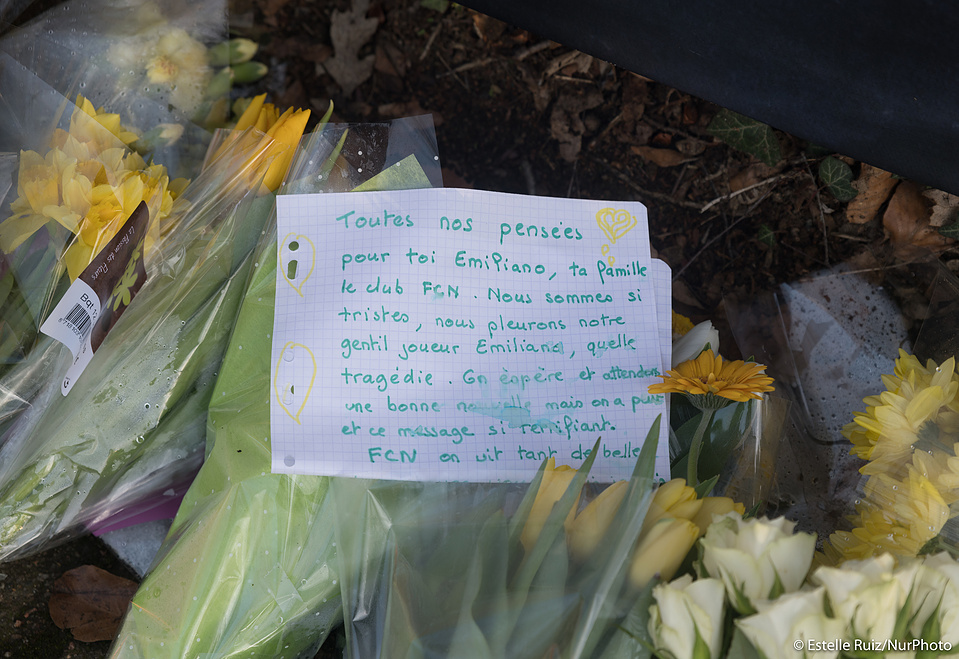 Toutes nos pensées
pour toi EmiPiano, ta famille
le club FCN. Nous sommes si
tristes, nous pleurons notre
gentil joueur Emiliano, quelle
tragédie. On espère et attendons
une bonne mais on a
et ce message si
FCN on vit tant de belle
La Maison des Fleurs
Bqt
© Estelle Ruiz/NurPhoto